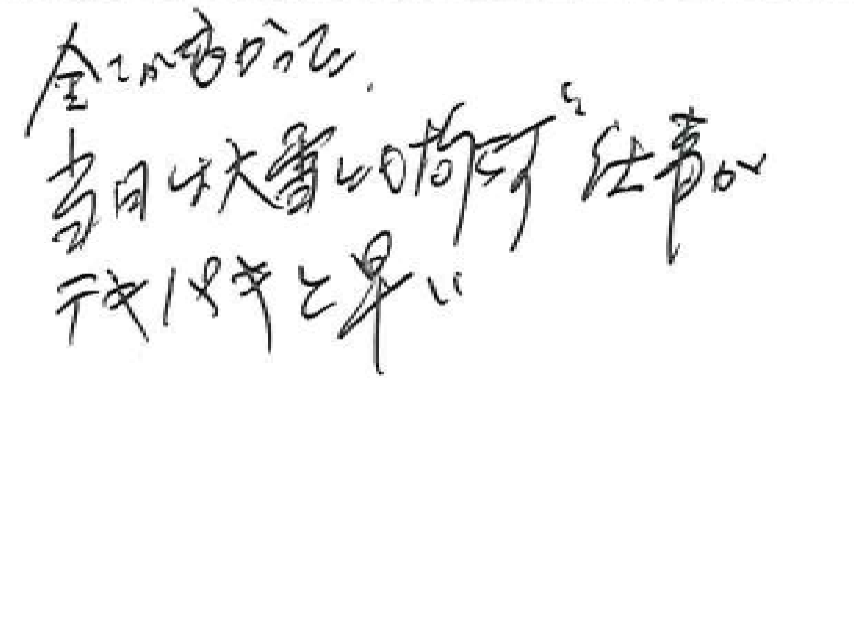 全てが良かったです.
当日は大雪との
仕事が
テキパキと早い